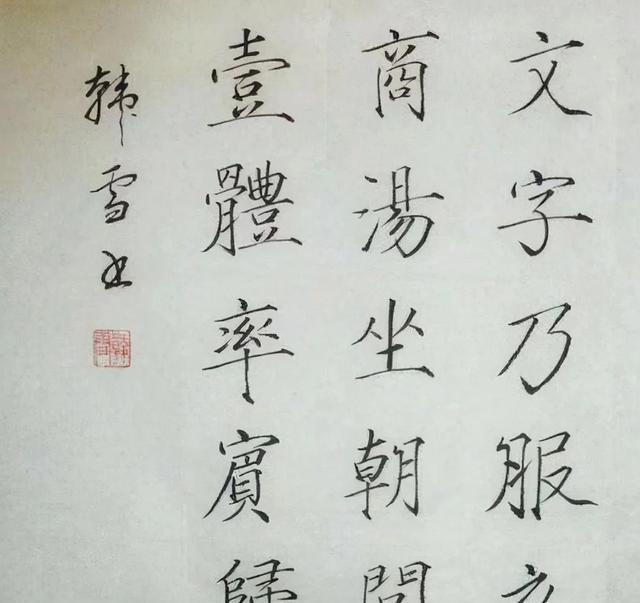 文字乃服衣
商湯坐朝問
壹體率賓歸
韩雪书